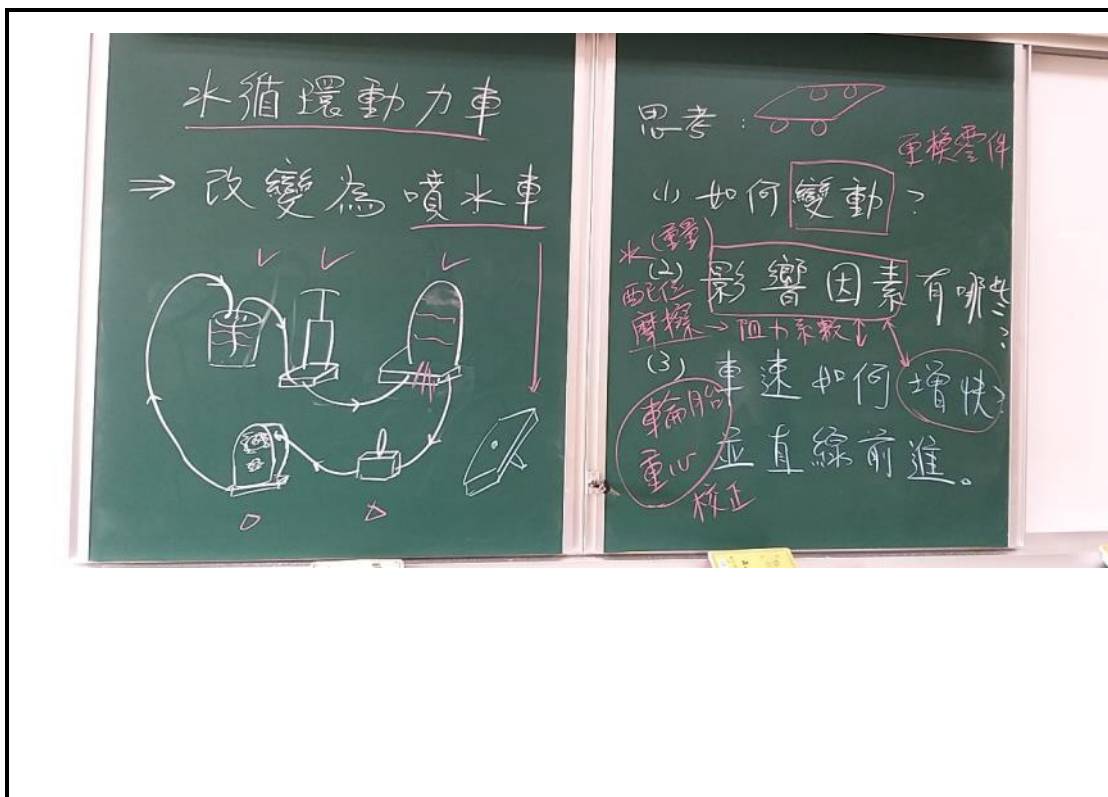 水循環動力車
⇒ 改變為噴水車
思考:
更換零件
(1) 如何變動?
水(重量)
(2) 影響因素有哪些?
配位
摩擦→阻力系數↕
(3) 車速如何增快?
輪胎
並直線前進。
重心
校正